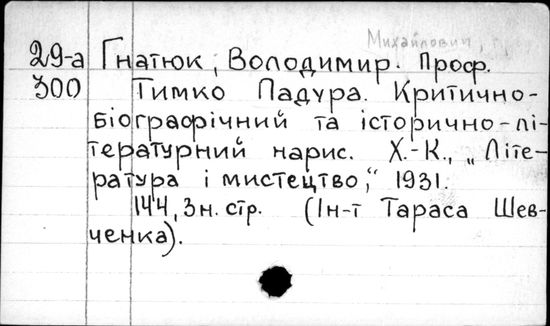 Михайлович,
29-а Гнатюк, Володимир. Проф.
300 Тимко Падура. Критично-
біографічний та історично-лі-
тературний нарис. Х.-К., „Літе-
ратура і мистецтво," 1931.
144, 3н. стр. (Ін-т Тараса Шев-
ченка).